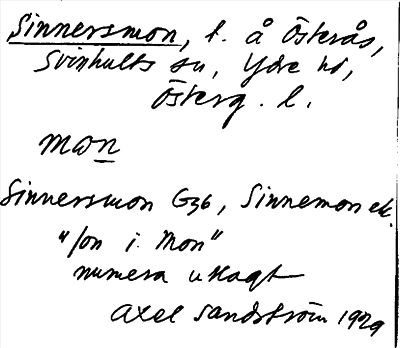 Sinnersmon, t. å Österås,
Svinhults sn, Ydre hd,
Österg. l.
mon
Sinnersmon G36, Sinnemon ek.
"Jon i Mon"
numera utlagt
Axel Sandström 1929